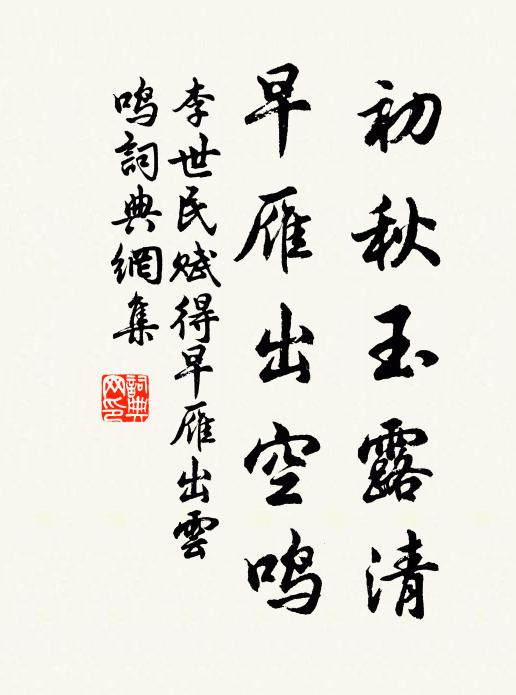 初秋玉露清
早雁出空鸣
李世民赋得早雁出雲
鸣詞典網集
詞典网印